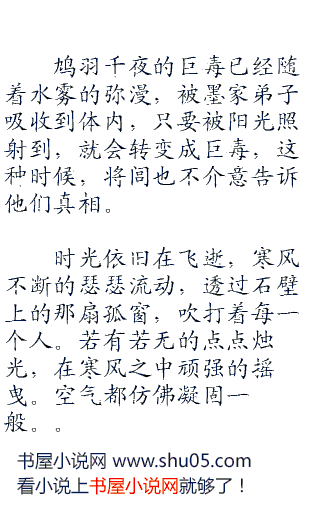 鸠羽千夜的巨毒已经随
着水雾的弥漫，被墨家弟子
吸收到体内，只要被阳光照
射到，就会转变成巨毒，这
种时候，将闾也不介意告诉
他们真相。
时光依旧在飞逝，寒风
不断的瑟瑟流动，透过石壁
上的那扇孤窗，吹打着每一
个人。若有若无的点点烛
光，在寒风之中顽强的摇
曳。空气都仿佛凝固一
般。。
书屋小说网 www.shu05.com
看小说上书屋小说网就够了！